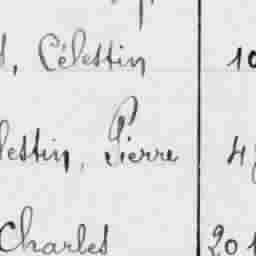 , Célestin 10
lestin, Pierre 4
Charles 201